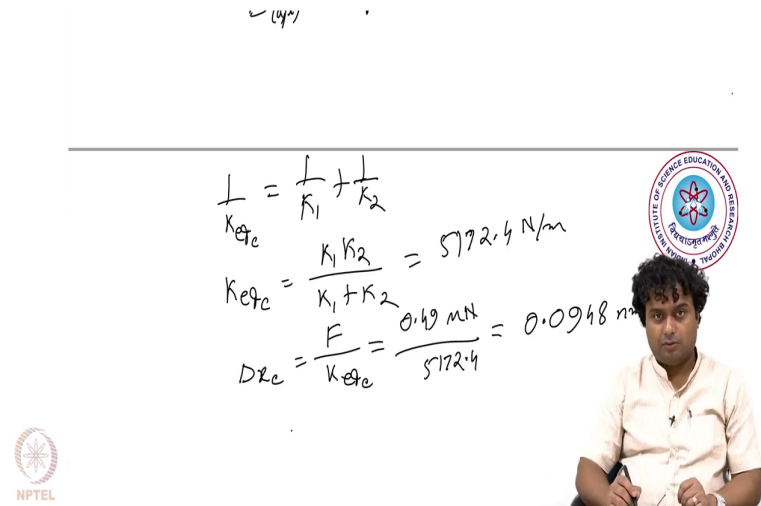 1/Keqc = 1/K1 + 1/K2
Keqc = K1 K2 / K1 + K2 = 5172.4 N/m
DRc = F / Keqc = 0.49 MN / 5172.4 = 0.0948
INDIAN INSTITUTE OF SCIENCE EDUCATION AND RESEARCH BHOPAL
NPTEL